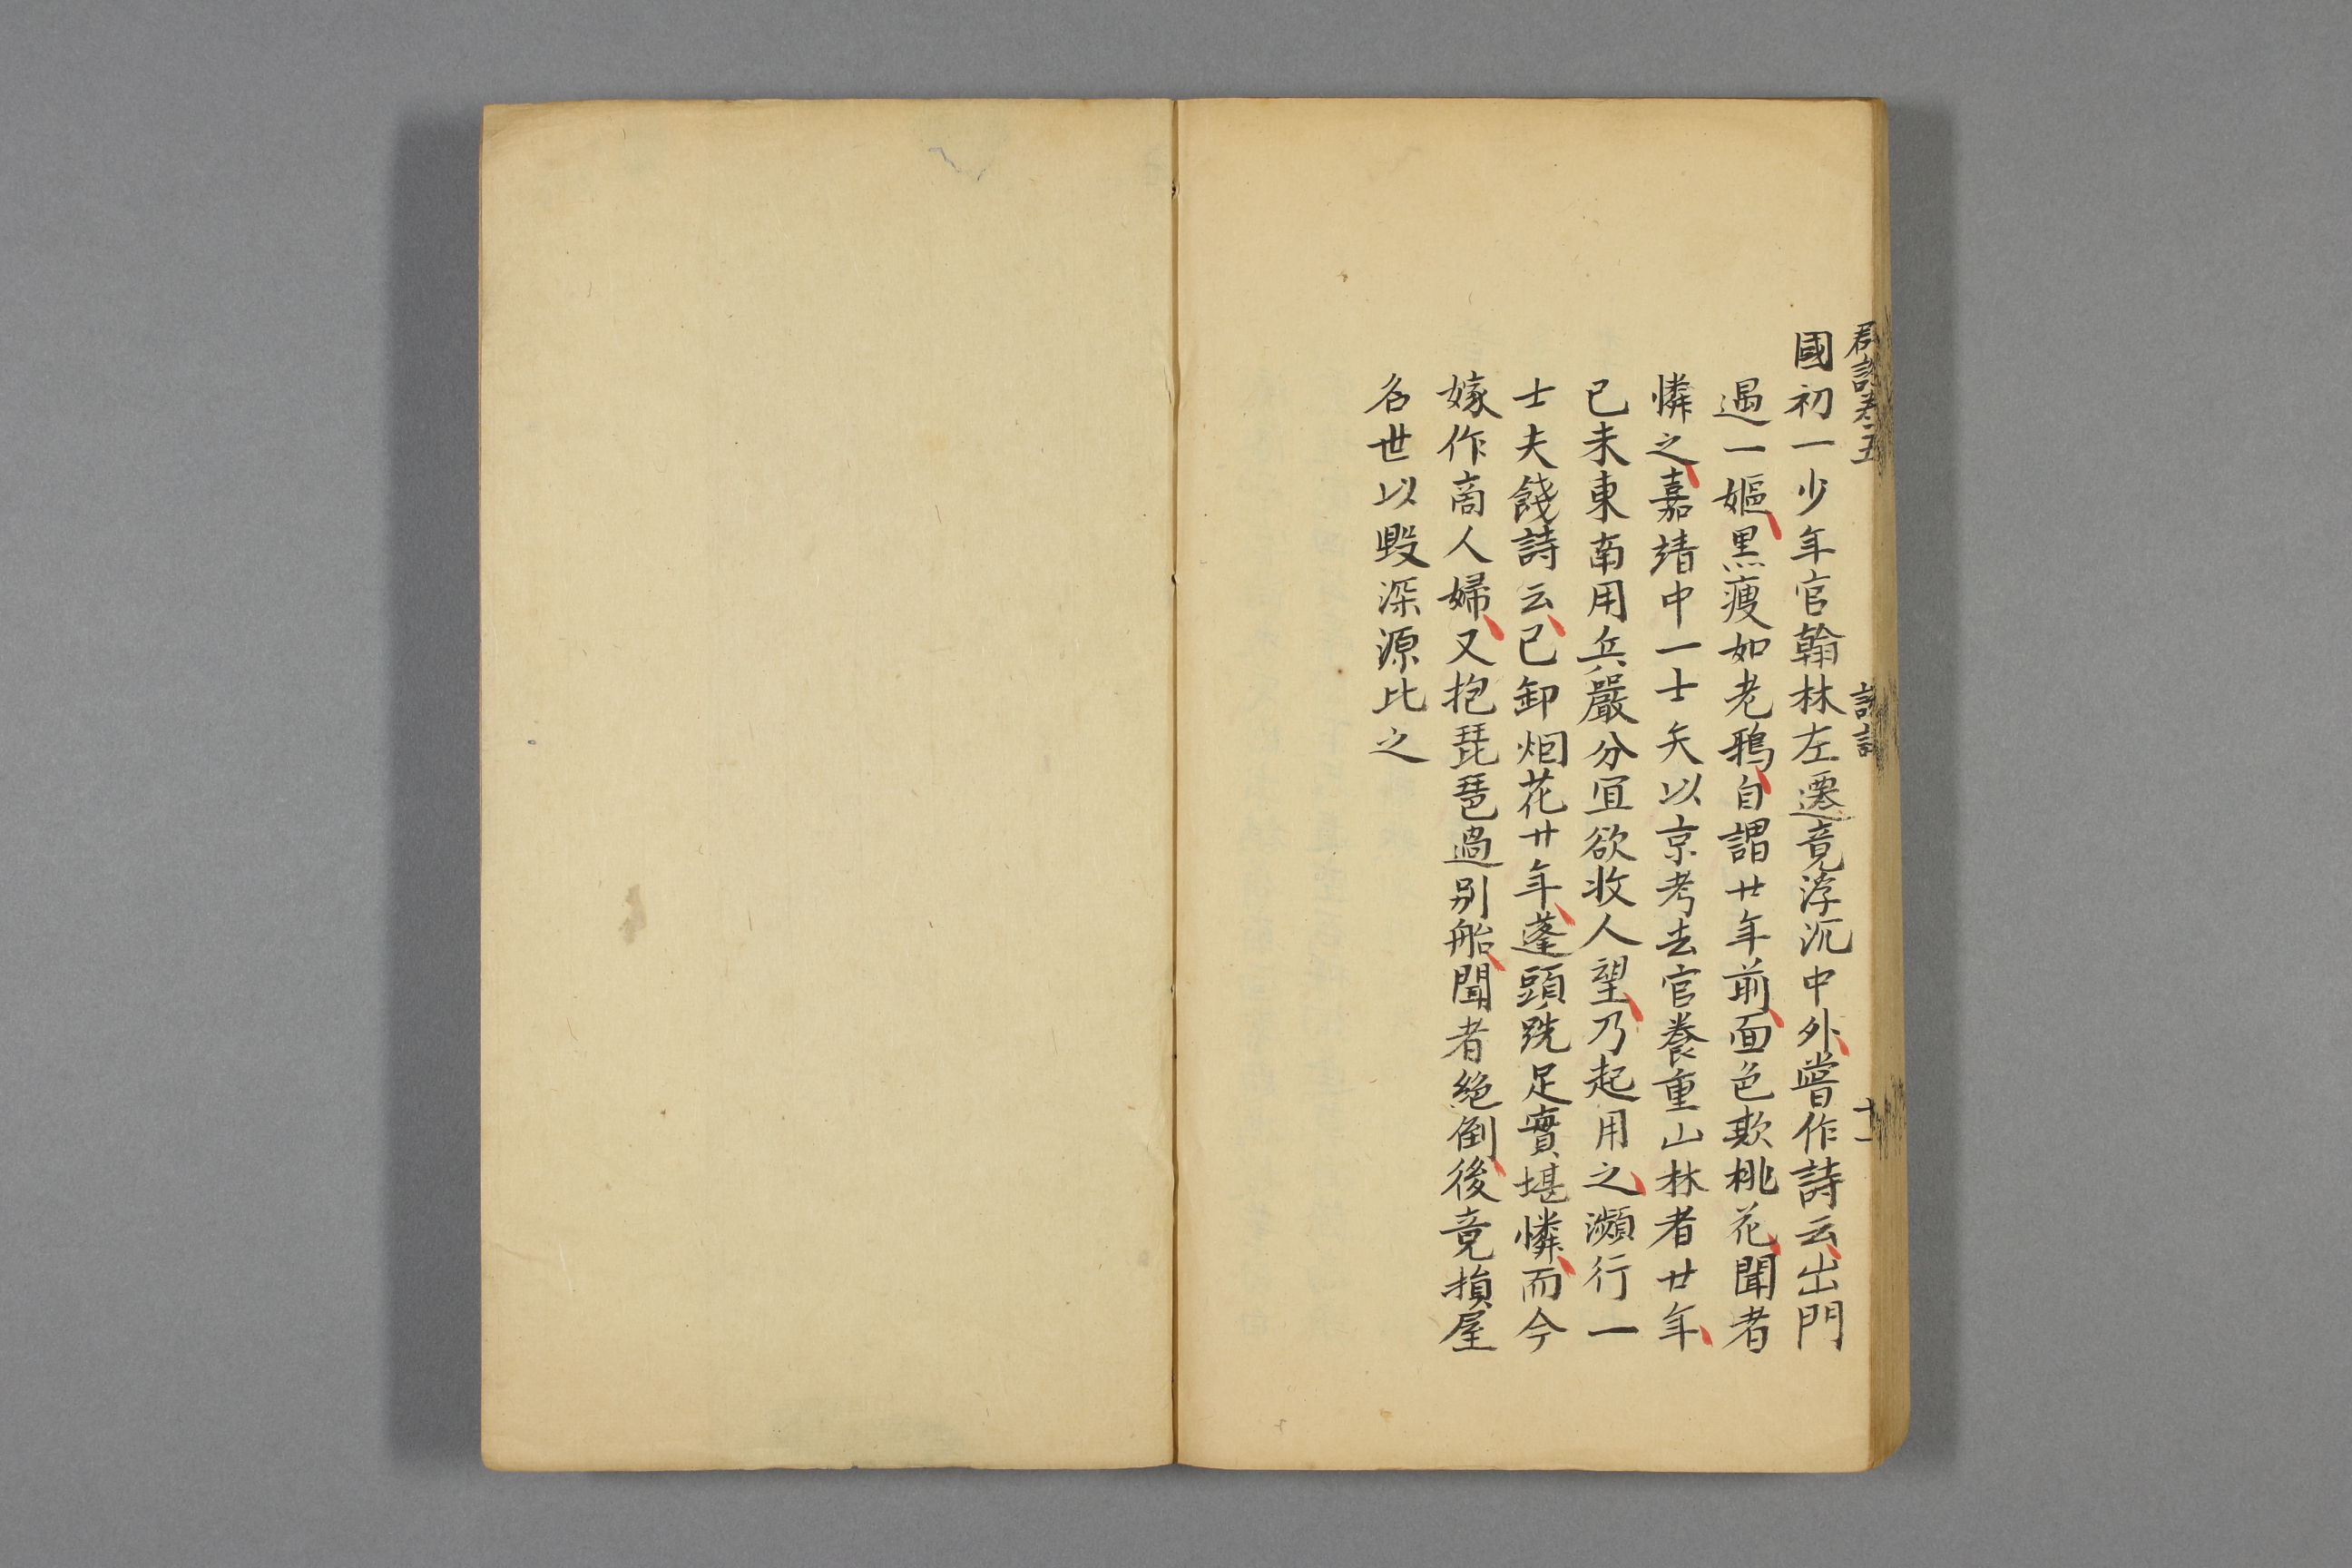 國初一少年官翰林左遷竟浮沉中外嘗作詩云出門
遇一嫗黑瘦如老鴉自謂廿年前面色欺桃花聞者
憐之嘉靖中一士夫以京考去官養重山林者廿年
已未東南用兵嚴分宜欲收人望乃起用之瀕行一
士夫餞詩云已卸烟花廿年蓬頭跣足實堪憐而今
嫁作商人婦又抱琵琶過別船聞者絕倒後竟損屋
名世以毀深源比之
卷五
十一